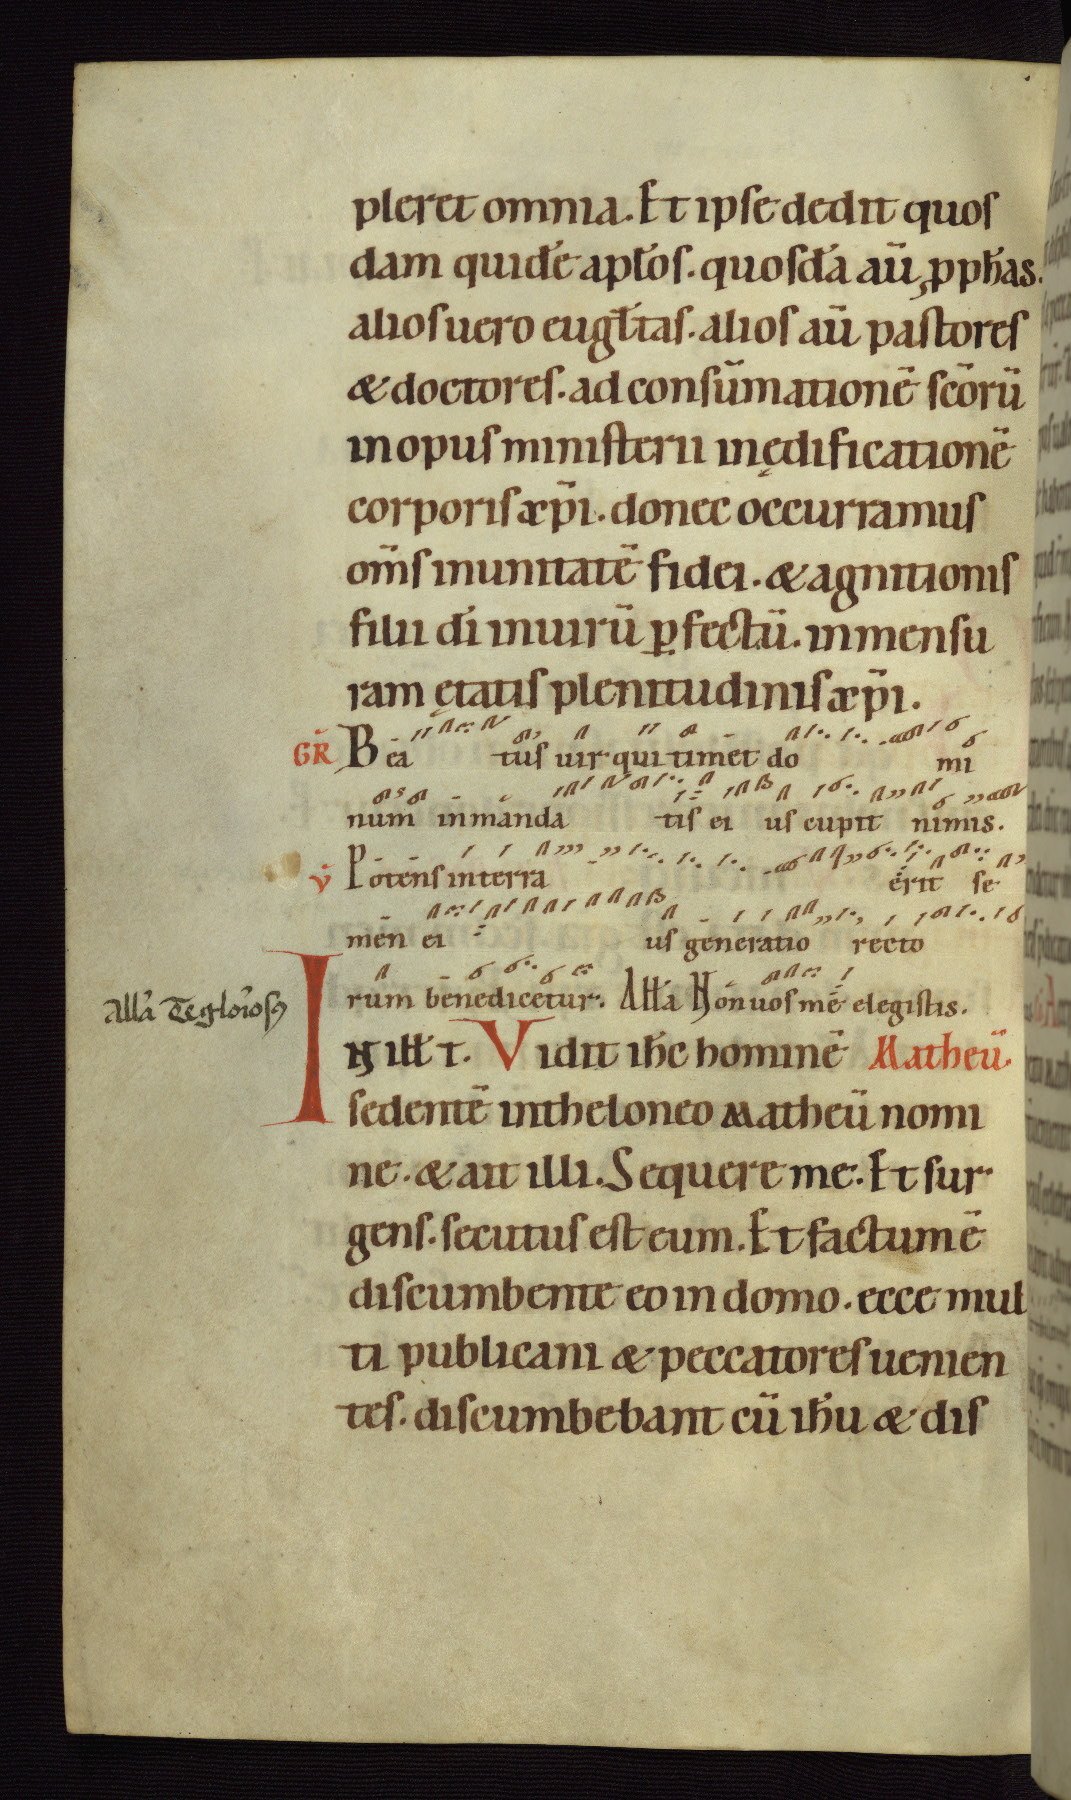 pleret omnia. Et ipse dedit quos
dam quidē apłos. quosdā aū ꝓphas.
alios uero eugłtas. alios aū pastores
& doctores. ad consūmationē scōrū
in opus ministerii in ędificationē
corporis xp̄i. donec occurramus
om̄s in unitatē fidei. & agnitionis
filii dī in uirū ꝑfectū. in mensu
ram ętatis plenitudinis xp̄i.
GR̄ Bea tus uir qui timet do mi
num in manda tis ei us cupit nimis.
v̄ Potens in terra erit se
men ei us generatio recto
rum benedicetur. Alła Non uos me elegistis.
allā Te glo͛iosꝰ
IN iłł t. Vidit ihc hominē Matheū.
sedentē in theloneo Matheū nomi
ne. & ait illi. Sequere me. Et sur
gens. secutus est eum. Et factum ē
discumbente eo in domo. ecce mul
ti publicani & peccatores uenien
tes. discumbebant cū ihu & dis